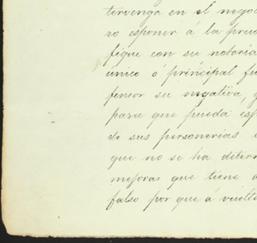 tervenga en el nego
so esponer á la pru
fique con su notoria
único ó principal fu
fensor su negativa, y
para que pueda esp
de sus personerías
que no se ha deter
mejoras que tiene
falso por que á vuelt